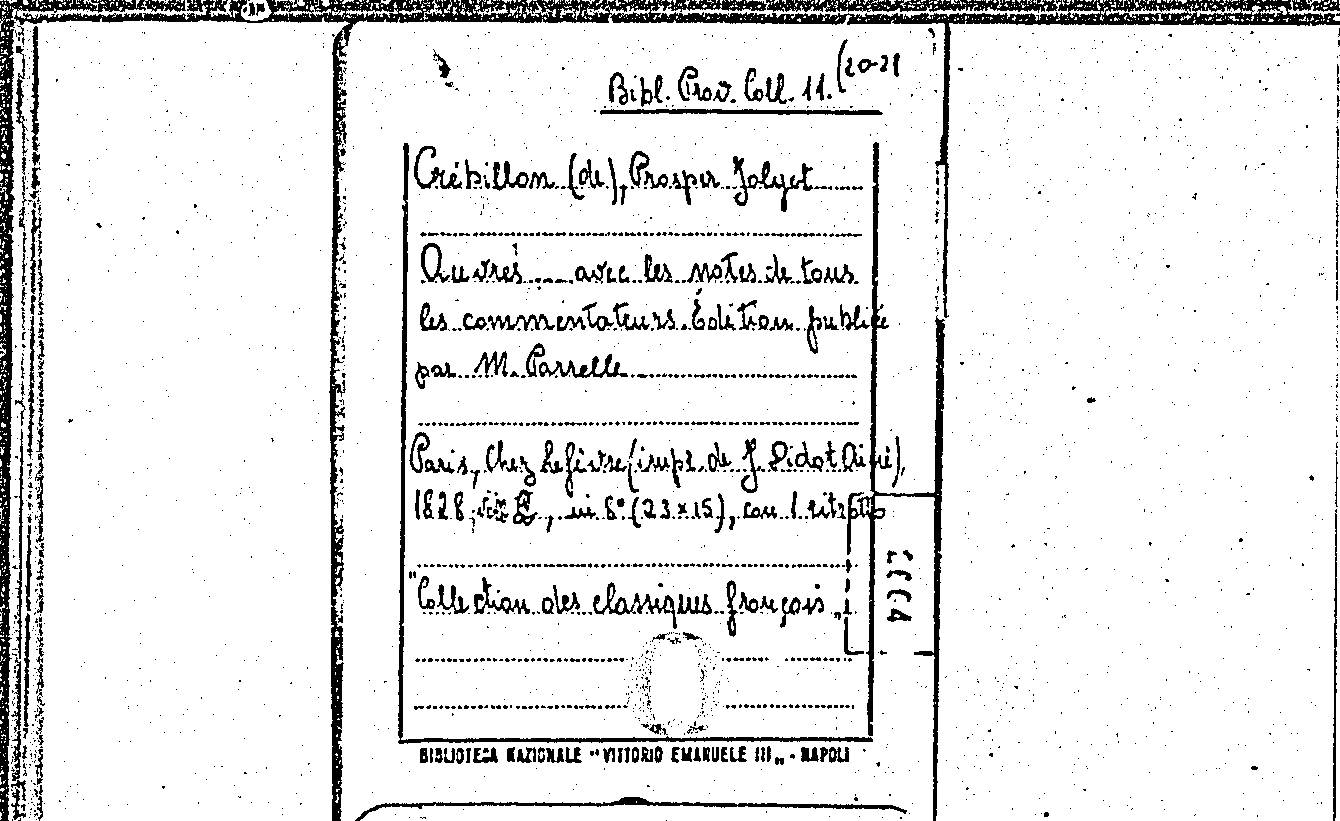 Bibl. Prov. Coll. 11. (20-21
Crébillon (de), Prosper Jolyot
Œuvres... avec les notes de tous
les commentateurs. Édition publiée
par M. Parrelle
Paris, Chez Lefèvre (impr. de J. Didot Ainé),
1828, in 8° (23x15), con 1 ritratto
"Collection des classiques françois„
BIBLIOTECA NAZIONALE "VITTORIO EMANUELE III„ - NAPOLI